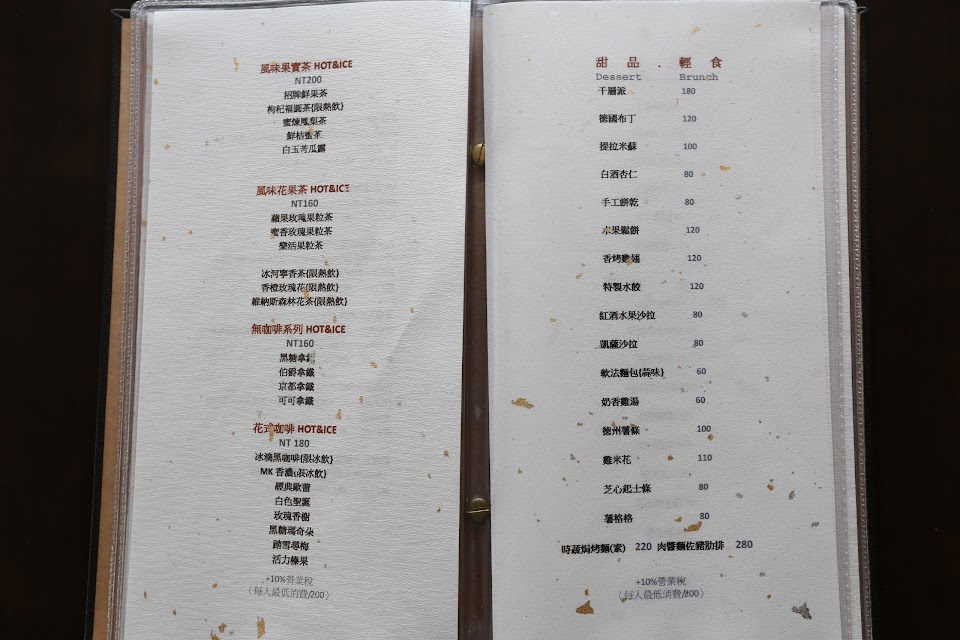 風味果實茶 HOT&ICE
NT200
招牌鮮果茶
枸杞福圓茶(限熱飲)
蜜煉鳳梨茶
鮮桔蜜茶
白玉苦瓜露
風味花果茶 HOT&ICE
NT160
蘋果玫瑰果粒茶
蜜香玫瑰果粒茶
樂活果粒茶
冰河寧香茶(限熱飲)
香橙玫瑰花(限熱飲)
維納斯森林花茶(限熱飲)
無咖啡系列 HOT&ICE
NT160
黑糖拿鐵
伯爵拿鐵
京都拿鐵
可可拿鐵
花式咖啡 HOT&ICE
NT 180
冰滴黑咖啡(限冰飲)
MK 香濃(限冰飲)
經典歐蕾
白色聖誕
玫瑰香榭
黑糖瑪奇朵
踏雪尋梅
活力榛果
+10%營業稅
(每人最低消費/200)
甜 品 . 輕 食
Dessert Brunch
千層派 180
德國布丁 120
提拉米蘇 100
白酒杏仁 80
手工餅乾 80
水果鬆餅 120
香烤雞翅 120
特製水餃 120
紅酒水果沙拉 80
凱薩沙拉 80
軟法麵包(蒜味) 60
奶香雞湯 60
德州薯條 100
雞米花 110
芝心起士條 80
薯格格 80
時蔬焗烤麵(素) 220 肉醬麵佐豬肋排 280
+10%營業稅
(每人最低消費/200)